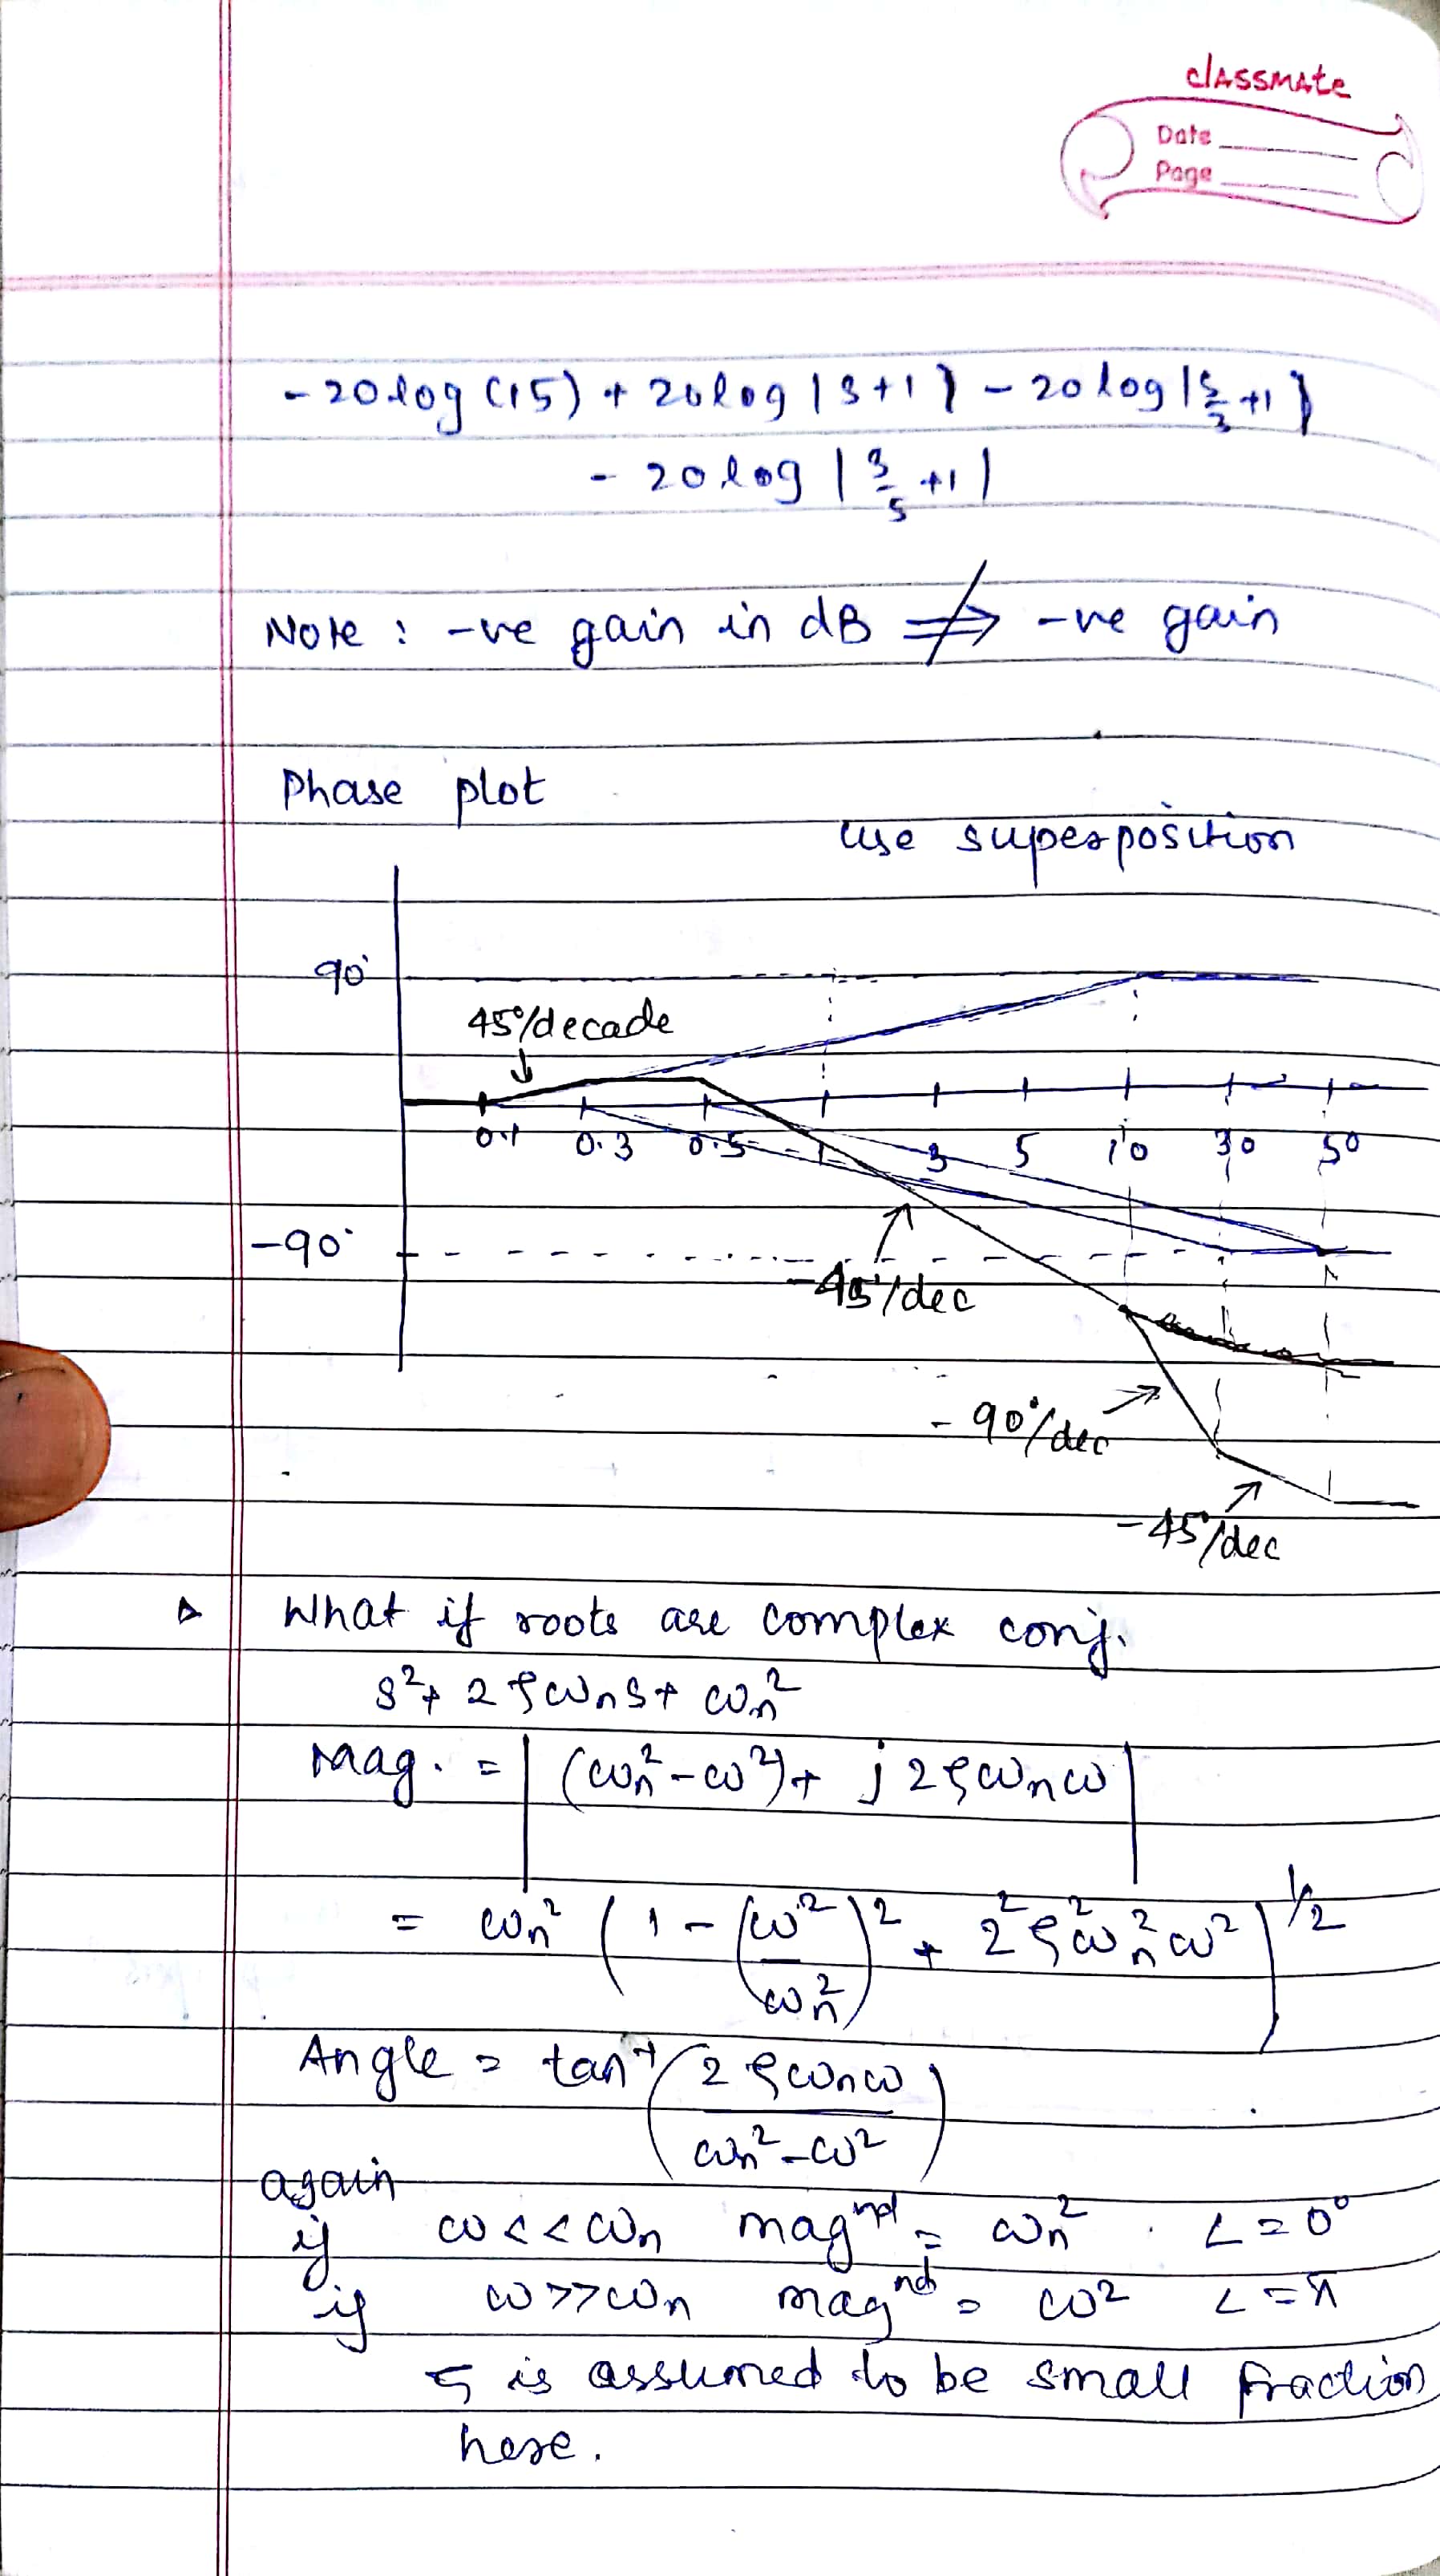 classmate
Date
Page
- 20 log (15) + 20 log |s+1| - 20 log |s/3 +1|
- 20 log |s/5 +1|
Note : -ve gain in dB ⇏ -ve gain
Phase plot
use superposition
90°
45°/decade
0.1 0.3 0.5 1 3 5 10 30 50
-90°
-45°/dec
-90°/dec
-45°/dec
▷ What if roots are complex conj.
s² + 2ζωns + ωn²
Mag. = |(ωn² - ω²) + j 2ζωnω|
= ωn² (1 - (ω²/ωn²)² + 2²ζ²ωn²ω²)^1/2
Angle = tan⁻¹(2ζωnω / ωn² - ω²)
again
if ω << ωn magnd = ωn² . ∠ = 0°
if ω >> ωn magnd = ω² ∠ = π
ζ is assumed to be small fraction
here.